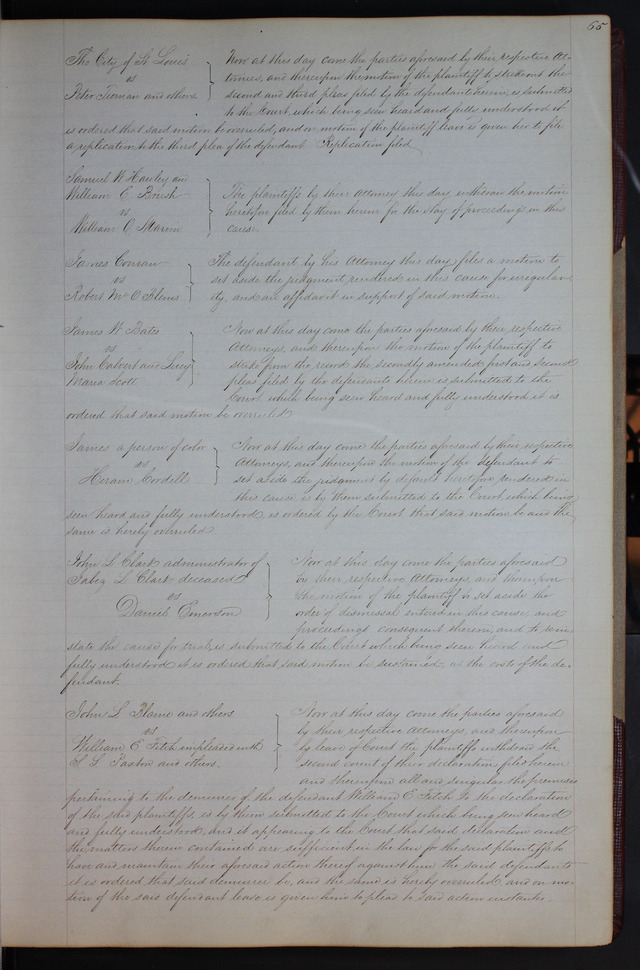 65
The City of St Louis
vs
Peter Tiernan and others
Now at this day come the parties aforesaid by their respective At-
tornies, and thereupon the motion of the plaintiff to strike out the
second and third pleas filed by the defendants herein, is submitted
to the Court, which being seen heard and fully understood it
is ordered that said motion be overruled, and on motion of the plaintiff leave is given her to file
a replication to the third plea of the defendant. Replication filed
Samuel W Hawley and
William E Brush
vs
William O
The plaintiffs by their Attorney this day withdraw the motion
heretofore filed by them herein for the stay of proceedings in this
cause.
James Conran
vs
Robert Mc O
The defendant by his Attorney this day files a motion to
set aside the judgment rendered in this cause for irregular-
ity, and an affidavit in support of said motion.
James W Bates
vs
John Calvert and Lucy
Maria Scott
Now at this day come the parties aforesaid by their respective
Attorneys, and thereupon the motion of the plaintiff to
strike from the record the secondly amended first and second
pleas filed by the defendants herein is submitted to the
Court which being seen heard and fully understood it is
ordered that said motion be overruled
James a person of color
vs
Hiram Cordell
Now at this day come the parties aforesaid by their respective
Attorneys, and thereupon the motion of the defendant to
set aside the judgment by default heretofore rendered in
this cause is by them submitted to the Court, which being
seen heard and fully understood, is ordered by the Court that said motion be and the
same is hereby overruled
John L Clark administrator of
Jabez L Clark deceased
vs
Daniel Emerson
Now at this day come the parties aforesaid
by their respective Attorneys, and thereupon
the motion of the plaintiff to set aside the
order of dismissal entered in this cause and
proceedings consequent thereon, and to rein-
state the cause for trial, is submitted to the Court which being seen heard and
fully understood it is ordered that said motion be sustained, at the costs of the de-
fendant.
John L Blaine and others
vs
William E Fitch impleaded with
S S and others.
Now at this day come the parties aforesaid
by their respective Attorneys, and thereupon
by leave of Court the plaintiffs withdraw the
second count of their declaration filed herein
and thereupon all and singular the premises
pertaining to the demurrer of the defendant William E Fitch to the declaration
of the said plaintiffs, is by them submitted to the Court which being seen heard
and fully understood, and it appearing to the Court that said declaration and
the matters therein contained are sufficient in the law for the said plaintiffs to
have and maintain their aforesaid action thereof against him the said defendant
it is ordered that said demurrer be, and the same is hereby overruled and on mo-
tion of the said defendant leave is given him to plead to said action instanter.